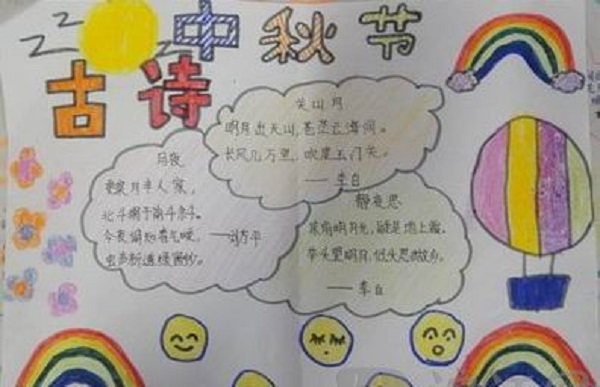 中秋节
古诗
关山月
明月出天山,苍茫云海间。
长风几万里,吹度玉门关。
——李白
月夜
更深月半人家,
北斗阑干南斗斜。
今夜偏知春气暖,
虫声新透绿窗纱。
——刘方平
静夜思
床前明月光,疑是地上霜。
举头望明月,低头思故乡。
——李白